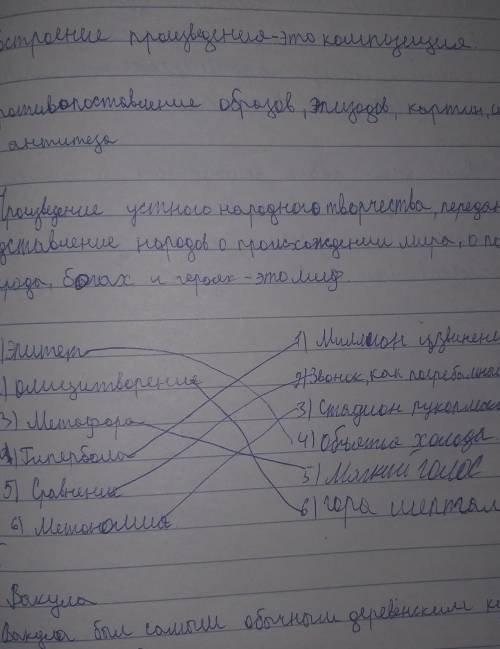 остроение произведения-это композиция
ротивопоставление образов, эпизодов, картин, и
антитеза
Произведение устного народного творчества, передан
дставление народов о происхождении мира, о по
рода, богах и героях-это миф
)Эпитет
1) Миллион извинени
) олицитворение
2) Звонок, как погребальный
3) Метафора
3) Стадион рукоплеск
4) Гипербола
4) Объятия холода
5) Сравнение
5) Мягкий голос
6) Метономия
6) гора шептал
Вакула
Вакула был самым обычным деревенским к